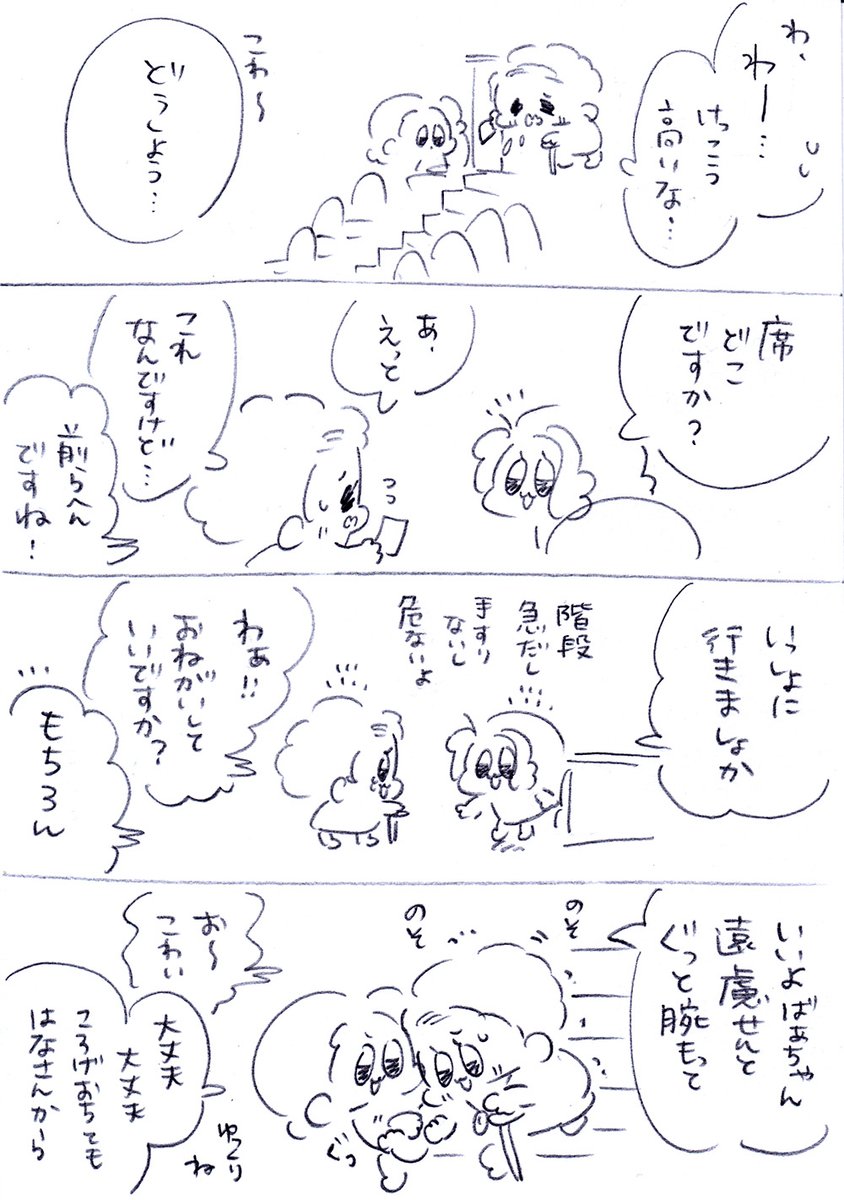 わ、
わー…
けっこう
高いな…
こわ～
どうしよう…
席
どこ
ですか？
あ、
えっと
これ
なんですけど…
前らへん
ですね！
いっしょに
行きましょか
階段
急だし
手すり
ないし
危ないよ
わぁ!!
おねがいして
いいですか？
もちろん
いいよばぁちゃん
遠慮せんと
ぐっと腕もって
のそ
のそ
お～
こわい
ぐっ
大丈夫
大丈夫
ころげおちても
はなさんから
ゆっくり
ね